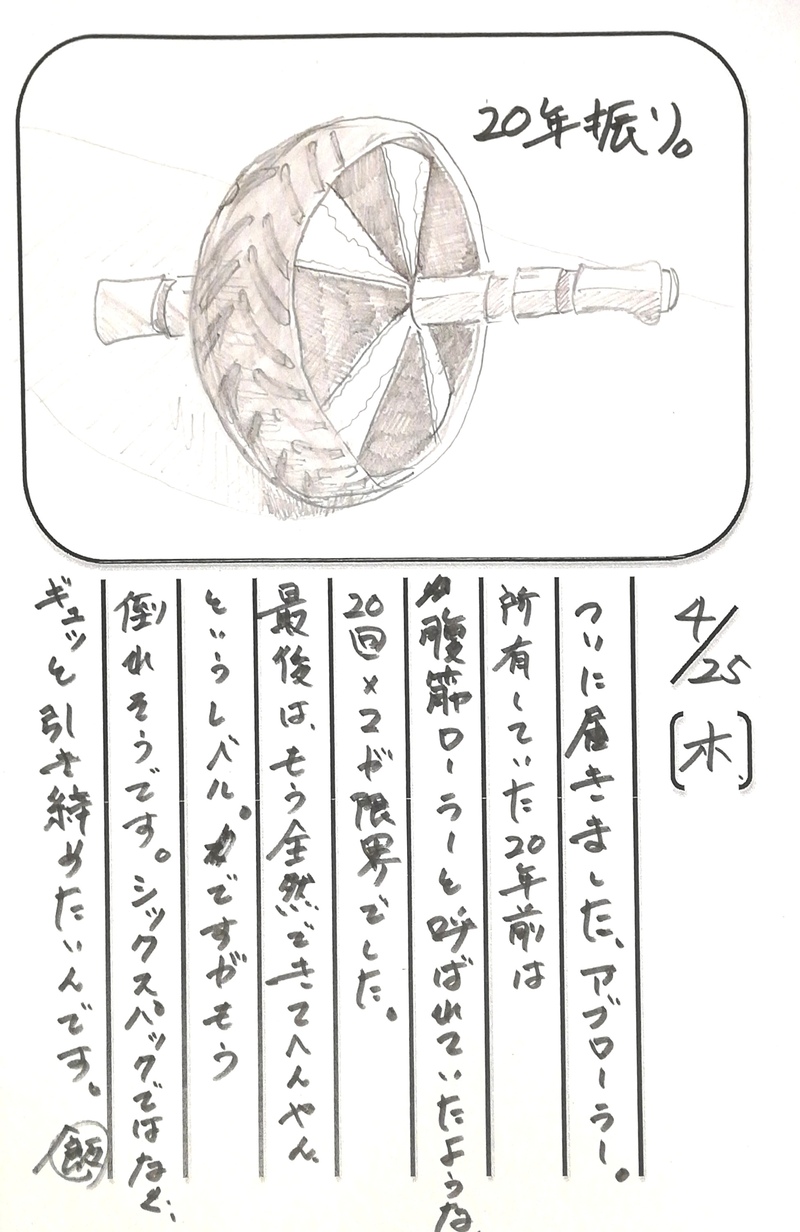 20年振り。
4/25[木]
ついに届きました、アブローラー。
所有していた20年前は
腹筋ローラーと呼ばれていたような
20回×2が限界でした。
最後は、もう全然できてへんやん
というレベル。ですがもう
倒れそうです。シックスパックではなく、
ギュッと引き締めたいんです。
飯